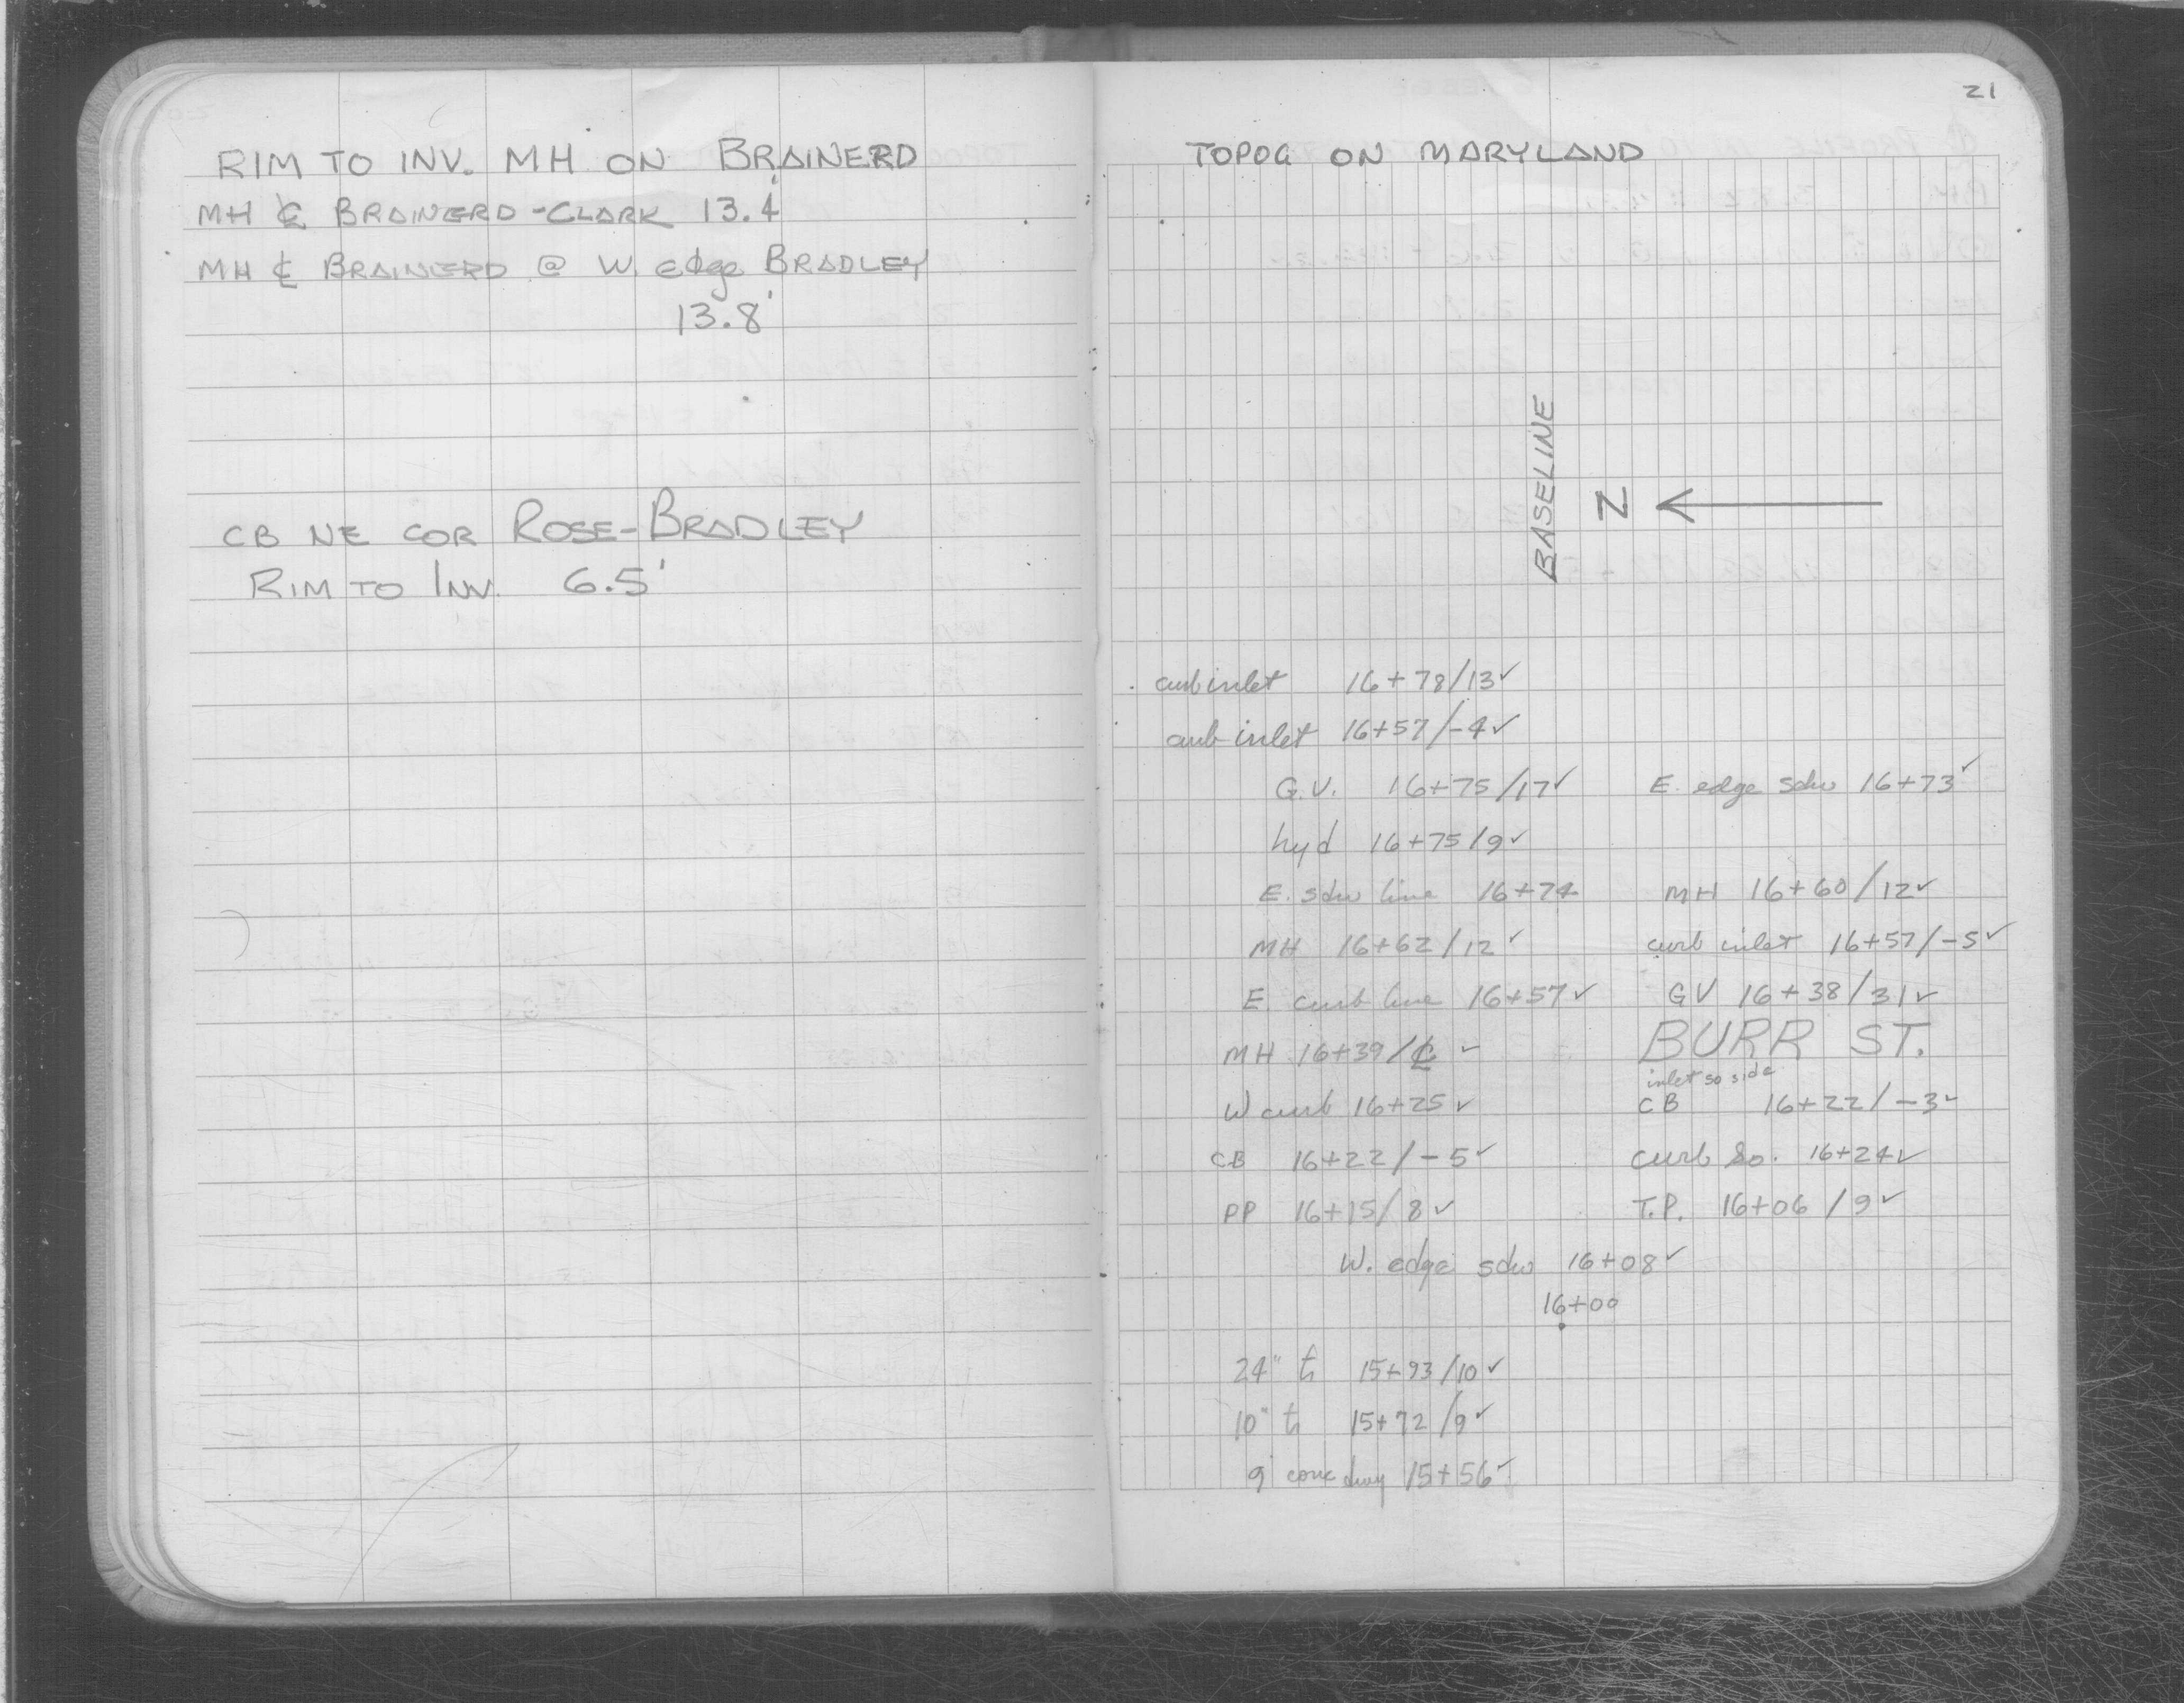 RIM TO INV. MH ON BRAINERD
MH ℄ BRAINERD - CLARK 13.4'
MH ℄ BRAINERD @ W. edge BRADLEY
13.8'
CB NE COR ROSE-BRADLEY
RIM TO INV. 6.5'
21
TOPOG ON MARYLAND
BASELINE
N
curb inlet 16+78/13✓
curb inlet 16+57/-4✓
G.V. 16+75/17✓ E. edge sdw 16+73✓
hyd 16+75/9✓
E. sdw line 16+74 MH 16+60/12✓
MH 16+62/12✓ curb inlet 16+57/-5✓
E. curb line 16+57✓ GV 16+38/31✓
MH 16+39/℄ ✓ BURR ST.
inlet so side
W curb 16+25✓ CB 16+22/-3✓
CB 16+22/-5✓ curb So. 16+24✓
PP 16+15/8✓ T.P. 16+06/9✓
W. edge sdw 16+08✓
16+00
24" tr 15+93/10✓
10" tr 15+72/9✓
9' conc dwy 15+56✓